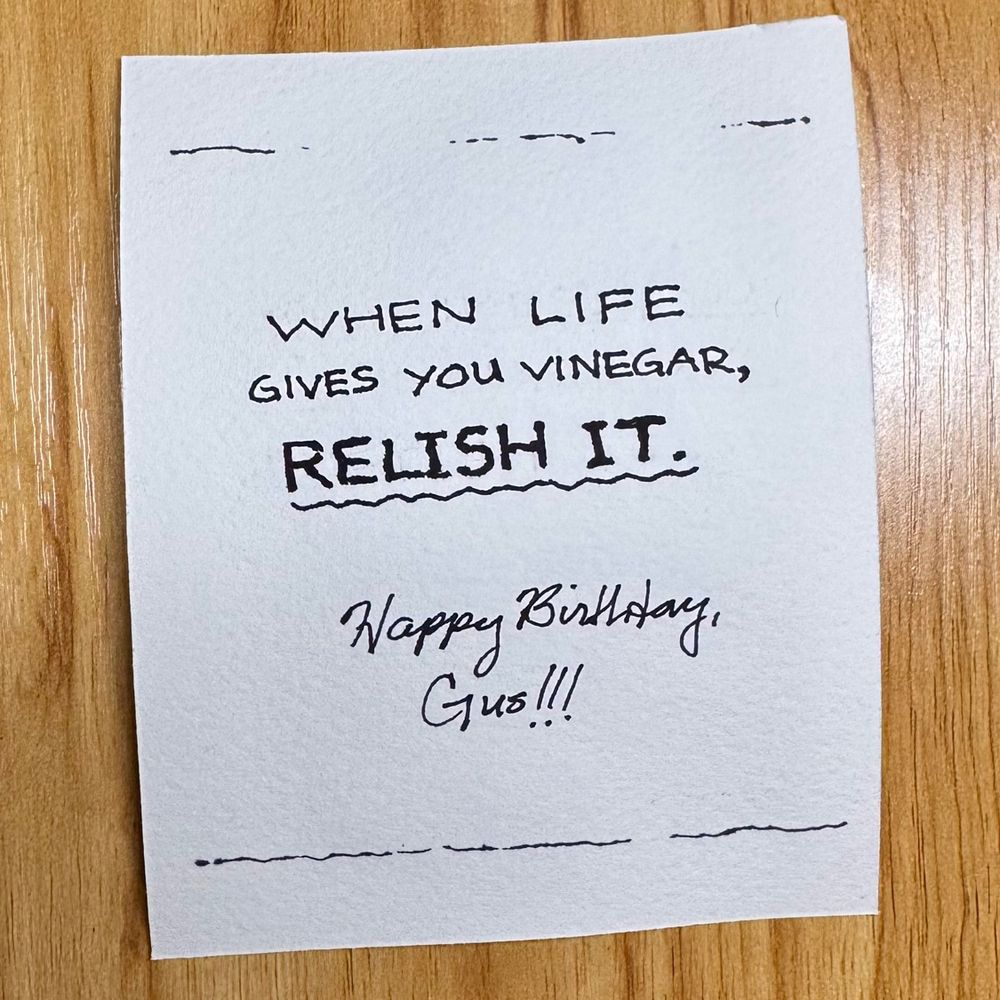 WHEN LIFE
GIVES YOU VINEGAR,
RELISH IT.
Happy Birthday,
Gus!!!